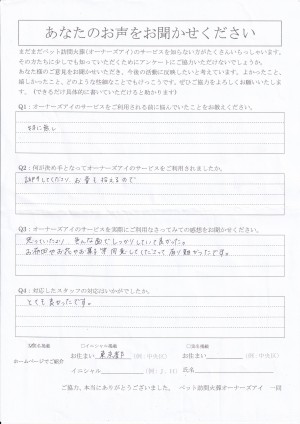 あなたのお声をお聞かせください
まだまだペット訪問火葬(オーナーズアイ)のサービスを知らない方がたくさんいらっしゃいます。
その方たちに少しでも知っていただくためにアンケートにご協力いただけないでしょうか。
あなた様のご意見をお聞かせいただき、今後の活動に反映したいと考えています。よかったこと、
嬉しかったこと、どのような些細なことでもけっこうです。ぜひご協力をよろしくお願いいたしま
す。(できるだけ具体的に書いていただけると助かります)
Q1:オーナーズアイのサービスをご利用される前に悩んでいたことをお教えください。
特に無し
Q2:何が決め手となってオーナーズアイのサービスをご利用されましたか。
訪問してくださり、お骨も拾えるので
Q3:オーナーズアイのサービスを実際にご利用なさってみての感想をお聞かせください。
思っていたより、色んな面でしっかりしていて良かった。
お線香やお花やお菓子等用意してくださって有り難かったです。
Q4:対応したスタッフの対応はいかがでしたか。
とても良かったです。
ホームページでご紹介
□イニシャル掲載
お住まい 東京都下 (例:中央区)
お住まい (例:中央区)
イニシャル (例:J.H)
氏名
ご協力、本当にありがとうございました。 ペット訪問火葬オーナーズアイ 一同